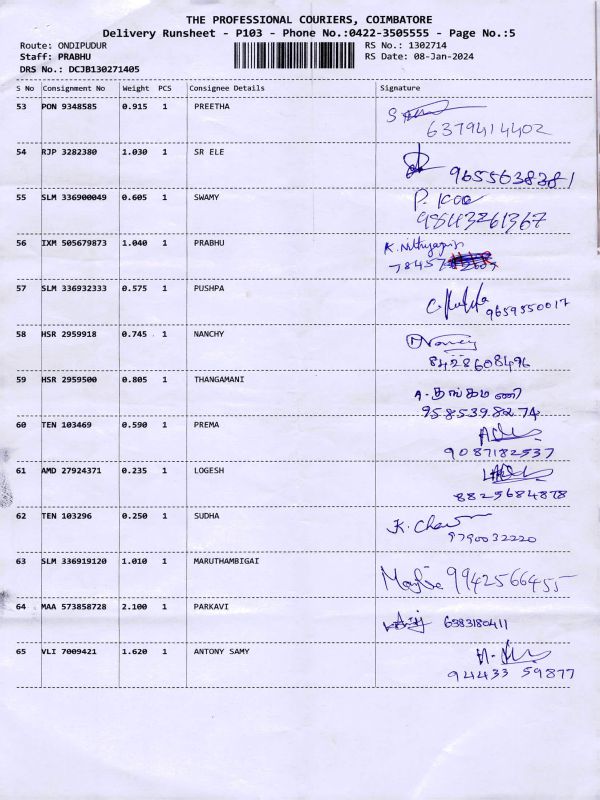 THE PROFESSIONAL COURIERS, COIMBATORE
Delivery Runsheet - P103 - Phone No.:0422-3505555 - Page No.:5
Route: ONDIPUDUR RS No.: 1302714
Staff: PRABHU RS Date: 08-Jan-2024
DRS No.: DCJB130271405
S No Consignment No Weight PCS Consignee Details Signature
53 PON 9348585 0.915 1 PREETHA
6379414402
54 RJP 3282380 1.030 1 SR ELE
9655638381
55 SLM 336900049 0.605 1 SWAMY P.
9843261367
56 IXM 505679873 1.040 1 PRABHU K.
78457
57 SLM 336932333 0.575 1 PUSHPA
9659550017
58 HSR 2959918 0.745 1 NANCHY Nancy
8428608496
59 HSR 2959500 0.805 1 THANGAMANI A. தங்கமணி
9585398274
60 TEN 103469 0.590 1 PREMA
9087182537
61 AMD 27924371 0.235 1 LOGESH
8825684878
62 TEN 103296 0.250 1 SUDHA K.
9790032220
63 SLM 336919120 1.010 1 MARUTHAMBIGAI
9942566455
64 MAA 573858728 2.100 1 PARKAVI
6383180411
65 VLI 7009421 1.620 1 ANTONY SAMY
94433 59877